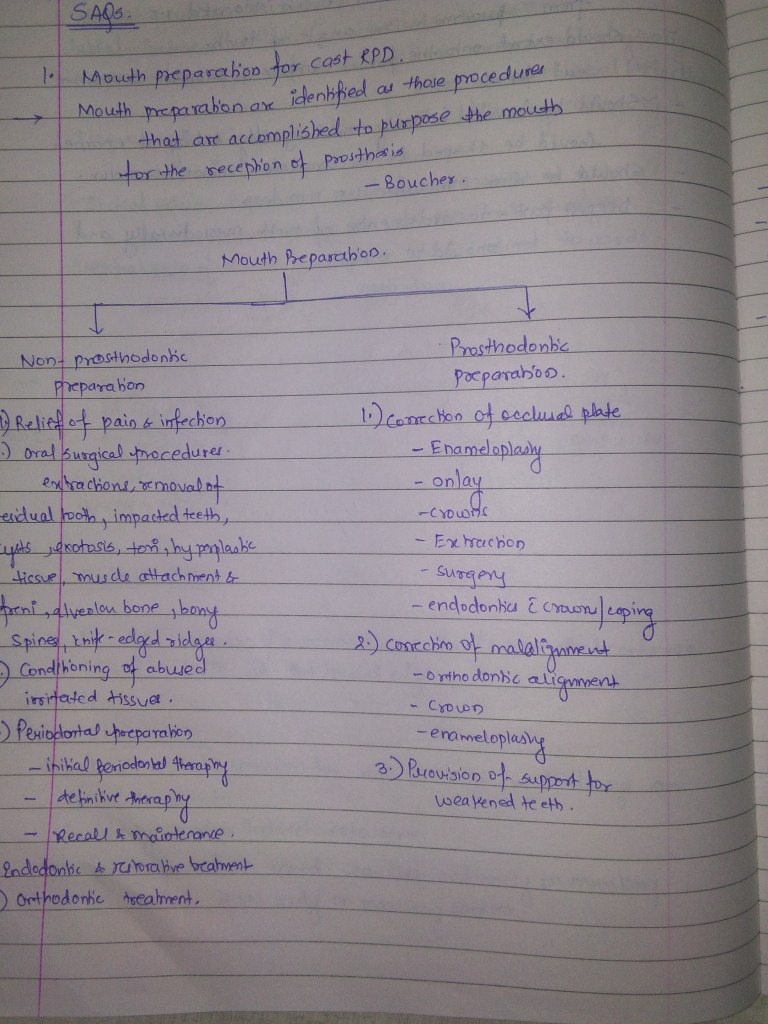 SAQs.
1. Mouth preparation for cast RPD.
→ Mouth preparation are identified as those procedures
that are accomplished to purpose the mouth
for the reception of prosthesis
- Boucher.
Mouth Preparation.
Non-prosthodontic
preparation
) Relief of pain & infection
.) Oral surgical procedures.
extractions, removal of
esidual tooth, impacted teeth,
ysts, exotosis, tori, hyperplastic
tissue, muscle attachment &
freni, alveolar bone, bony
spines, knife-edged ridges.
) Conditioning of abused
irritated tissues.
) Periodontal preparation
- initial periodontal theraphy
- definitive theraphy
- Recall & maintenance.
Endodontic & restorative treatment
) Orthodontic treatment.
Prosthodontic
preparation.
1.) Correction of occlusal plate
- Enameloplasty
- onlay
- crowns
- Extraction
- surgery
- endodontics c crown/coping
2.) Correction of malalignment
- orthodontic alignment
- Crown
- enameloplasty
3.) Provision of support for
weakened teeth.